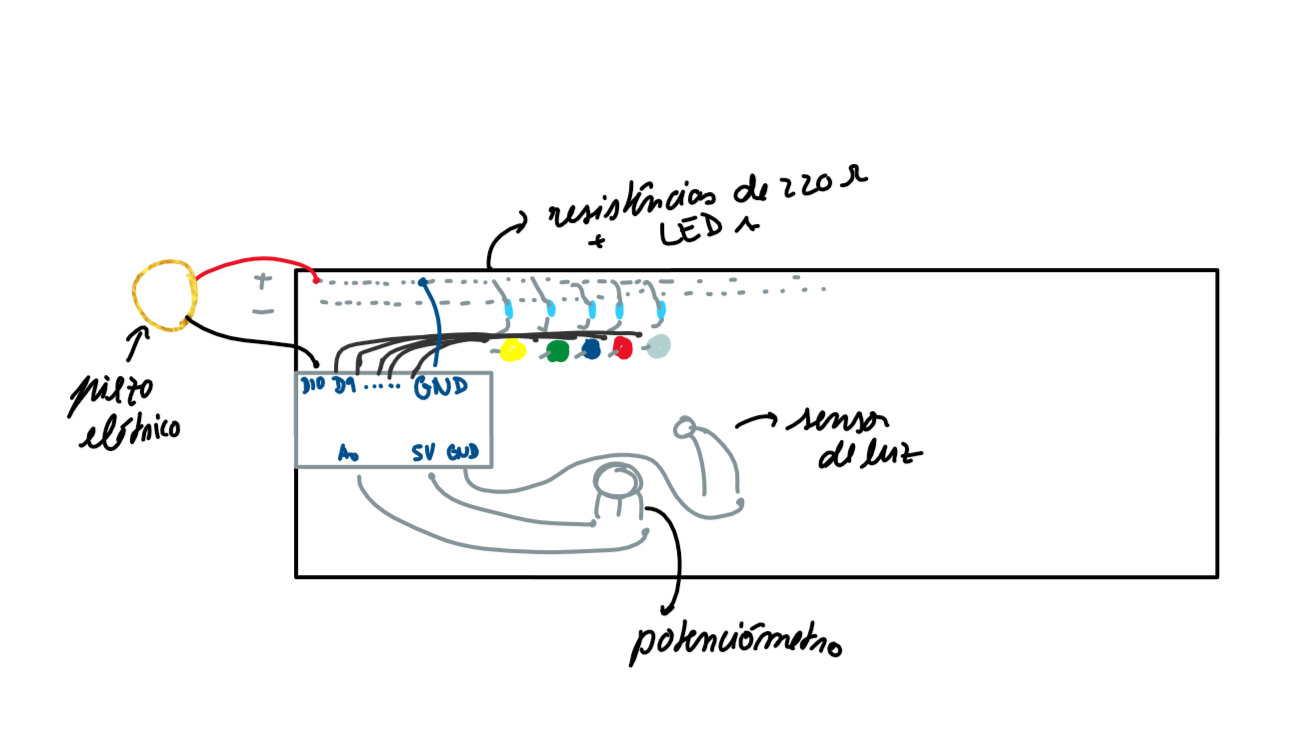 resistências de 220 Ω
+ LED s
+
-
piezo
elétrico
D10 D9 ..... GND
A0 5V GND
sensor
de luz
potenciómetro